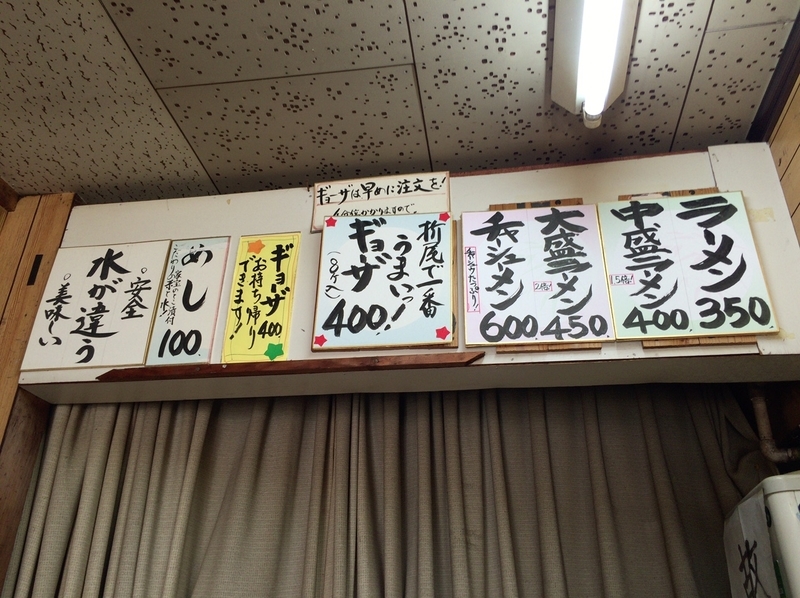 ラーメン
350
中盛ラーメン
1.5倍!
400
大盛ラーメン
2倍!
450
チャーシューメン
チャーシューたっぷり!
600
ギョーザは早めに注文を!
折尾で一番
うまいっ!
ギョーザ
(8ヶ入)
400!
ギョーザ400
お持ち帰り
できます!!
めし
100
。安全
水が違う
。美味しい